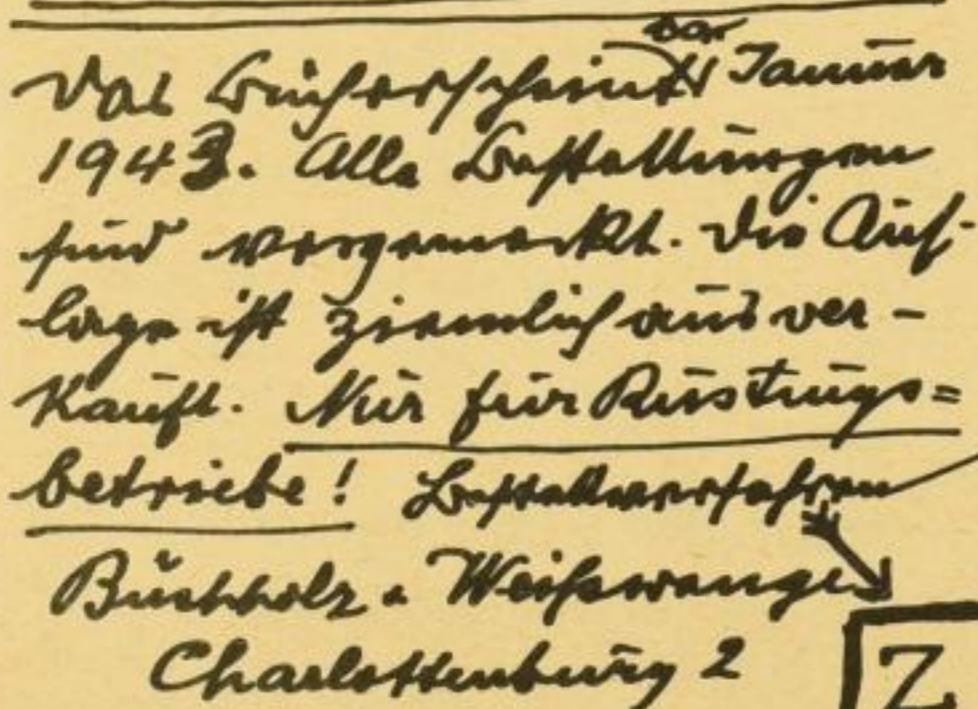 Das Buch erscheint Januar
1943. Alle Bestellungen
sind vorgemerkt. Die Auf-
lage ist ziemlich ausver-
kauft. Nur für Rüstungs=
betriebe! Bestellverfahren
Buchholz u. Weißwange
Charlottenburg 2
Z